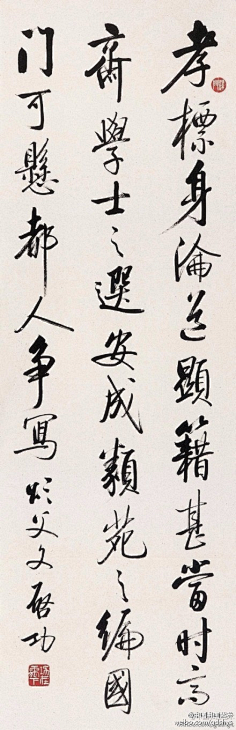 孝標身淪道顯籍甚當時高
齋學士之選安成類苑之編國
门可懸都人争寫 容父文 啟功